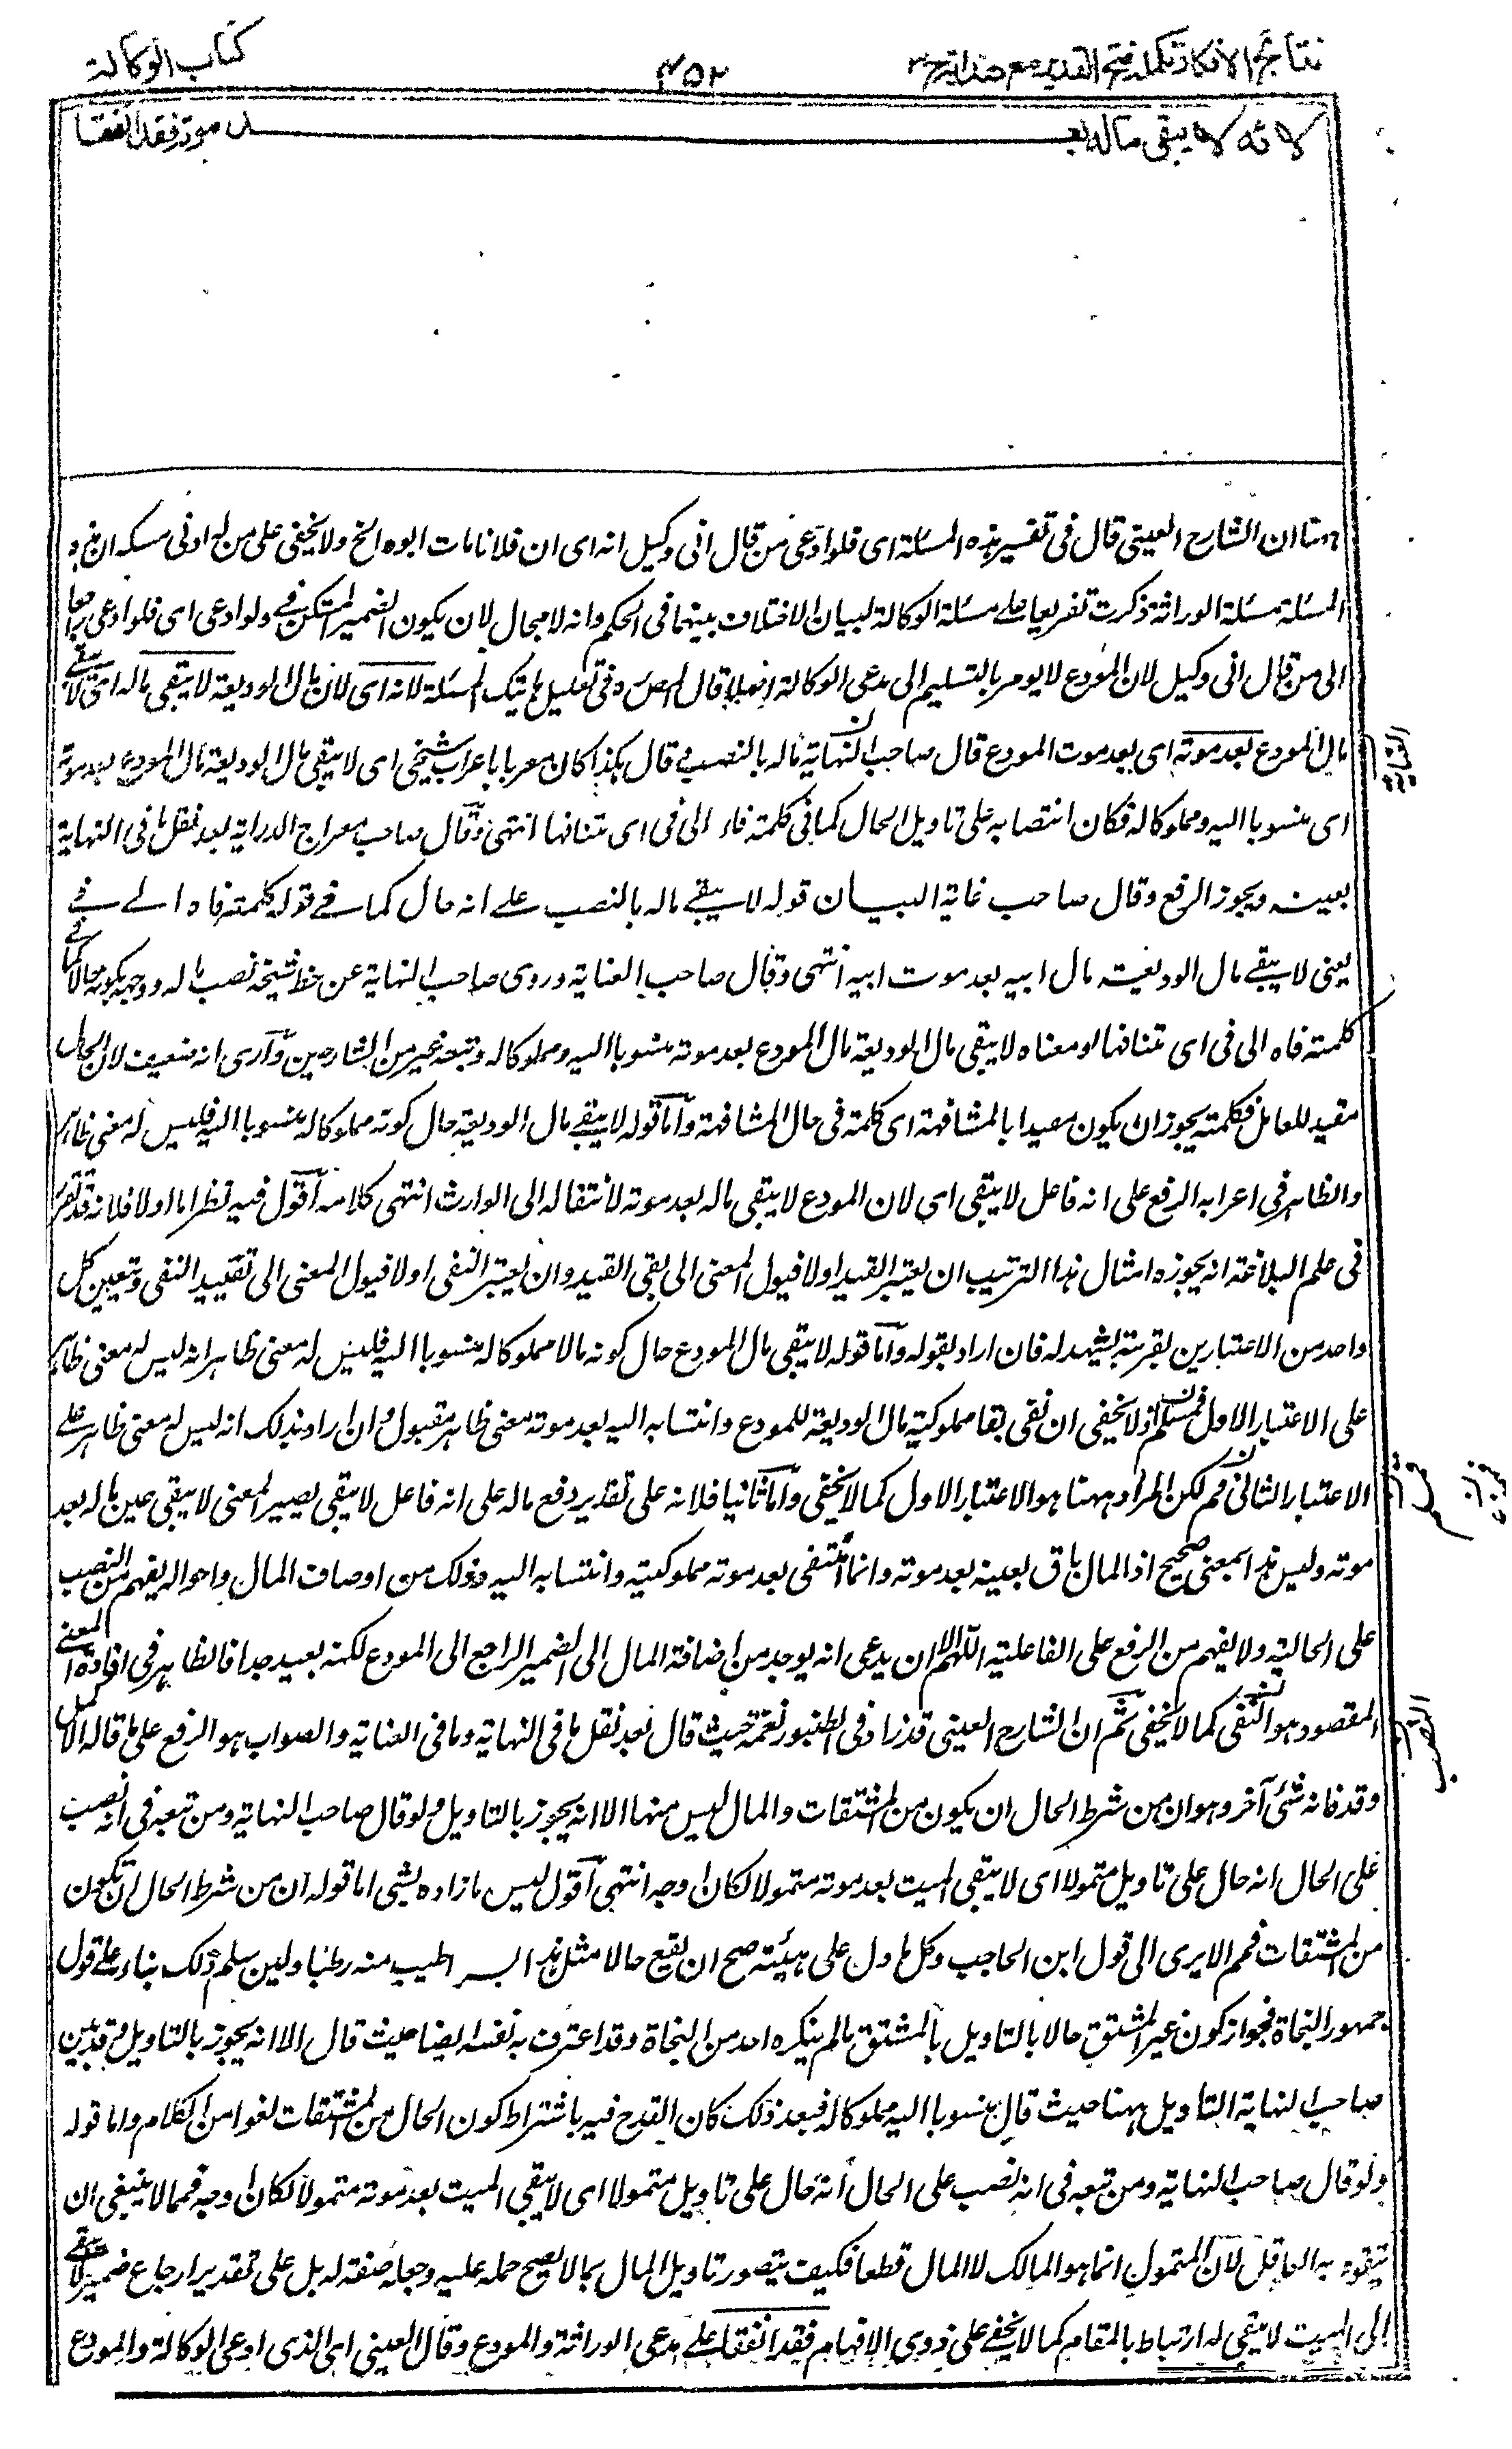 نتائج الافكار تكمله فتح القدير مع هدايه ج ٣
٤٥٢
كتاب الوكالة
لانه لا يبقى ماله بعد موته فقد اتفقا
ههنا ان الشارح العينى قال فى تفسير هذه المسئلة اى فلو ادعى من قال انى وكيل انه اى ان فلانا مات ابوه الخ ولا يخفى على من له ادنى مسكة ان هذه
المسئلة مسئلة الوراثة ذكرت تفريعا على مسئلة الوكالة لبيان الاختلاف بينهما فى الحكم وانه لا مجال لان يكون الضمير المستكن فى ولو ادعى اى فلو ادعى راجعا
الى من قال انى وكيل لان المودع لا يومر بالتسليم الى مدعى الوكالة اصلا قال المص ره فى تعليل هاتيك المسئلة لانه اى لان مال الوديعة لا يبقى ماله اى لا يبقى
مال المودع بعد موته اى بعد موت المودع قال صاحب النهاية ماله بالنصب قال هكذا كان معربا باعراب شيخى اى لا يبقى مال الوديعة مال المودع بعد موته
اى منسوبا اليه ومملوكا له فكان انتصابه على تاويل الحال كما فى كلمته فاه الى فى اى مشافها انتهى وقال صاحب معراج الدراية بعد نقل ما فى النهاية
بعينه ويجوز الرفع وقال صاحب غاية البيان قوله لا يبقى ماله بالنصب على انه حال كما فى قوله كلمته فاه الى فى
يعنى لا يبقى مال الوديعة مال ابيه بعد موت ابيه انتهى وقال صاحب العناية وروى صاحب النهاية عن خط شيخه نصب ماله ووجهه بكونه حالا كما فى
كلمته فاه الى فى اى مشافها ومعناه لا يبقى مال الوديعة مال المودع بعد موته منسوبا اليه ومملوكا له وتبعه غيره من الشارحين وارى انه ضعيف لان الحال
مقيد للعامل فكلمته يجوز ان يكون مقيدا بالمشافهة اى كلمته فى حال المشافهة واما قوله لا يبقى مال الوديعة حال كونه مملوكا له منسوبا اليه فليس له معنى ظاهر
والظاهر فى اعرابه الرفع على انه فاعل لا يبقى اى لان المودع لا يبقى ماله بعد موته لانتقاله الى الوارث انتهى كلامه اقول فيه نظر اما اولا فلانه قد تقرر
فى علم البلاغة انه يجوز فى امثال هذا الترتيب ان يعتبر القيد اولا فيول المعنى الى نفى القيد وان يعتبر النفى اولا فيول المعنى الى تقييد النفى ويتعين كل
واحد من الاعتبارين بقرينة يشهد له فان اراد بقوله واما قوله لا يبقى مال المودع حال كونه مالا مملوكا له منسوبا اليه فليس له معنى ظاهر انه ليس له معنى ظاهر
على الاعتبار الاول فمسلم اذ لا يخفى ان نفى بقا مملوكية مال الوديعة للمودع وانتسابه اليه بعد موته معنى ظاهر مقبول وان اراد بذلك انه ليس له معنى ظاهر على
الاعتبار الثانى فم لكن المراد ههنا هو الاعتبار الاول كما لا يخفى واما ثانيا فلانه على تقدير رفع ماله على انه فاعل لا يبقى يصير المعنى لا يبقى عين ماله بعد
موته وليس هذا بمعنى صحيح اذ المال باق بعينه بعد موته وانما المنتفى بعد موته مملوكيته وانتسابه اليه وذلك من اوصاف المال واحواله يفهم من النصب
على الحالية ولا يفهم من الرفع على الفاعلية اللهم الا ان يدعى انه يوجد من اضافة المال الى الضمير الراجع الى المودع لكنه بعيد جدا فالظاهر فى افادة المعنى
المقصود هو النفى كما لا يخفى ثم ان الشارح العينى قد زاد فى الطنبور نغمة حيث قال بعد نقل ما فى النهاية وما فى العناية والصواب هو الرفع على ما قاله الاكمل
وقد فاته شئ آخر وهو ان من شرط الحال ان يكون من المشتقات والمال ليس منها الا انه يجوز بالتاويل ولو قال صاحب النهاية ومن تبعه فى انه نصب
على الحال انه حال على تاويل متمولا اى لا يبقى الميت بعد موته متمولا لكان اوجه انتهى اقول ليس ما زاده بشى اما قوله ان من شرط الحال ان تكون
من المشتقات فمم الا يرى الى قول ابن الحاجب وكل ما دل على هيئة صح ان يقع حالا مثل هذا بسرا اطيب منه رطبا ولئن سلم ذلك بناء على قول
جمهور النحاة فجواز كون غير المشتق حالا بالتاويل بالمشتق مالم ينكره احد من النحاة وقد اعترف به نفسه ايضا حيث قال الا انه يجوز بالتاويل وقد بين
صاحب النهاية التاويل ههنا حيث قال منسوبا اليه مملوكا له فبعد ذلك كان القدح فيه باشتراط كون الحال من المشتقات لغوا من الكلام واما قوله
ولو قال صاحب النهاية ومن تبعه فى انه نصب على الحال انه حال على تاويل متمولا اى لا يبقى الميت بعد موته متمولا لكان اوجه فمما لا ينبغى ان
يتفوه به العاقل لان المتمول انما هو المالك لا المال قطعا فكيف يتصور تاويل المال بما لا يصح حمله عليه وجعله صفة له بل على تقدير ارجاع ضمير لا يبقى
الى الميت لا يبقى له ارتباط بالمقام كما لا يخفى على ذوى الافهام فقد اتفقا على مدعى الوراثة والمودع وقال العينى اى الذى ادعى الوكالة والمودع